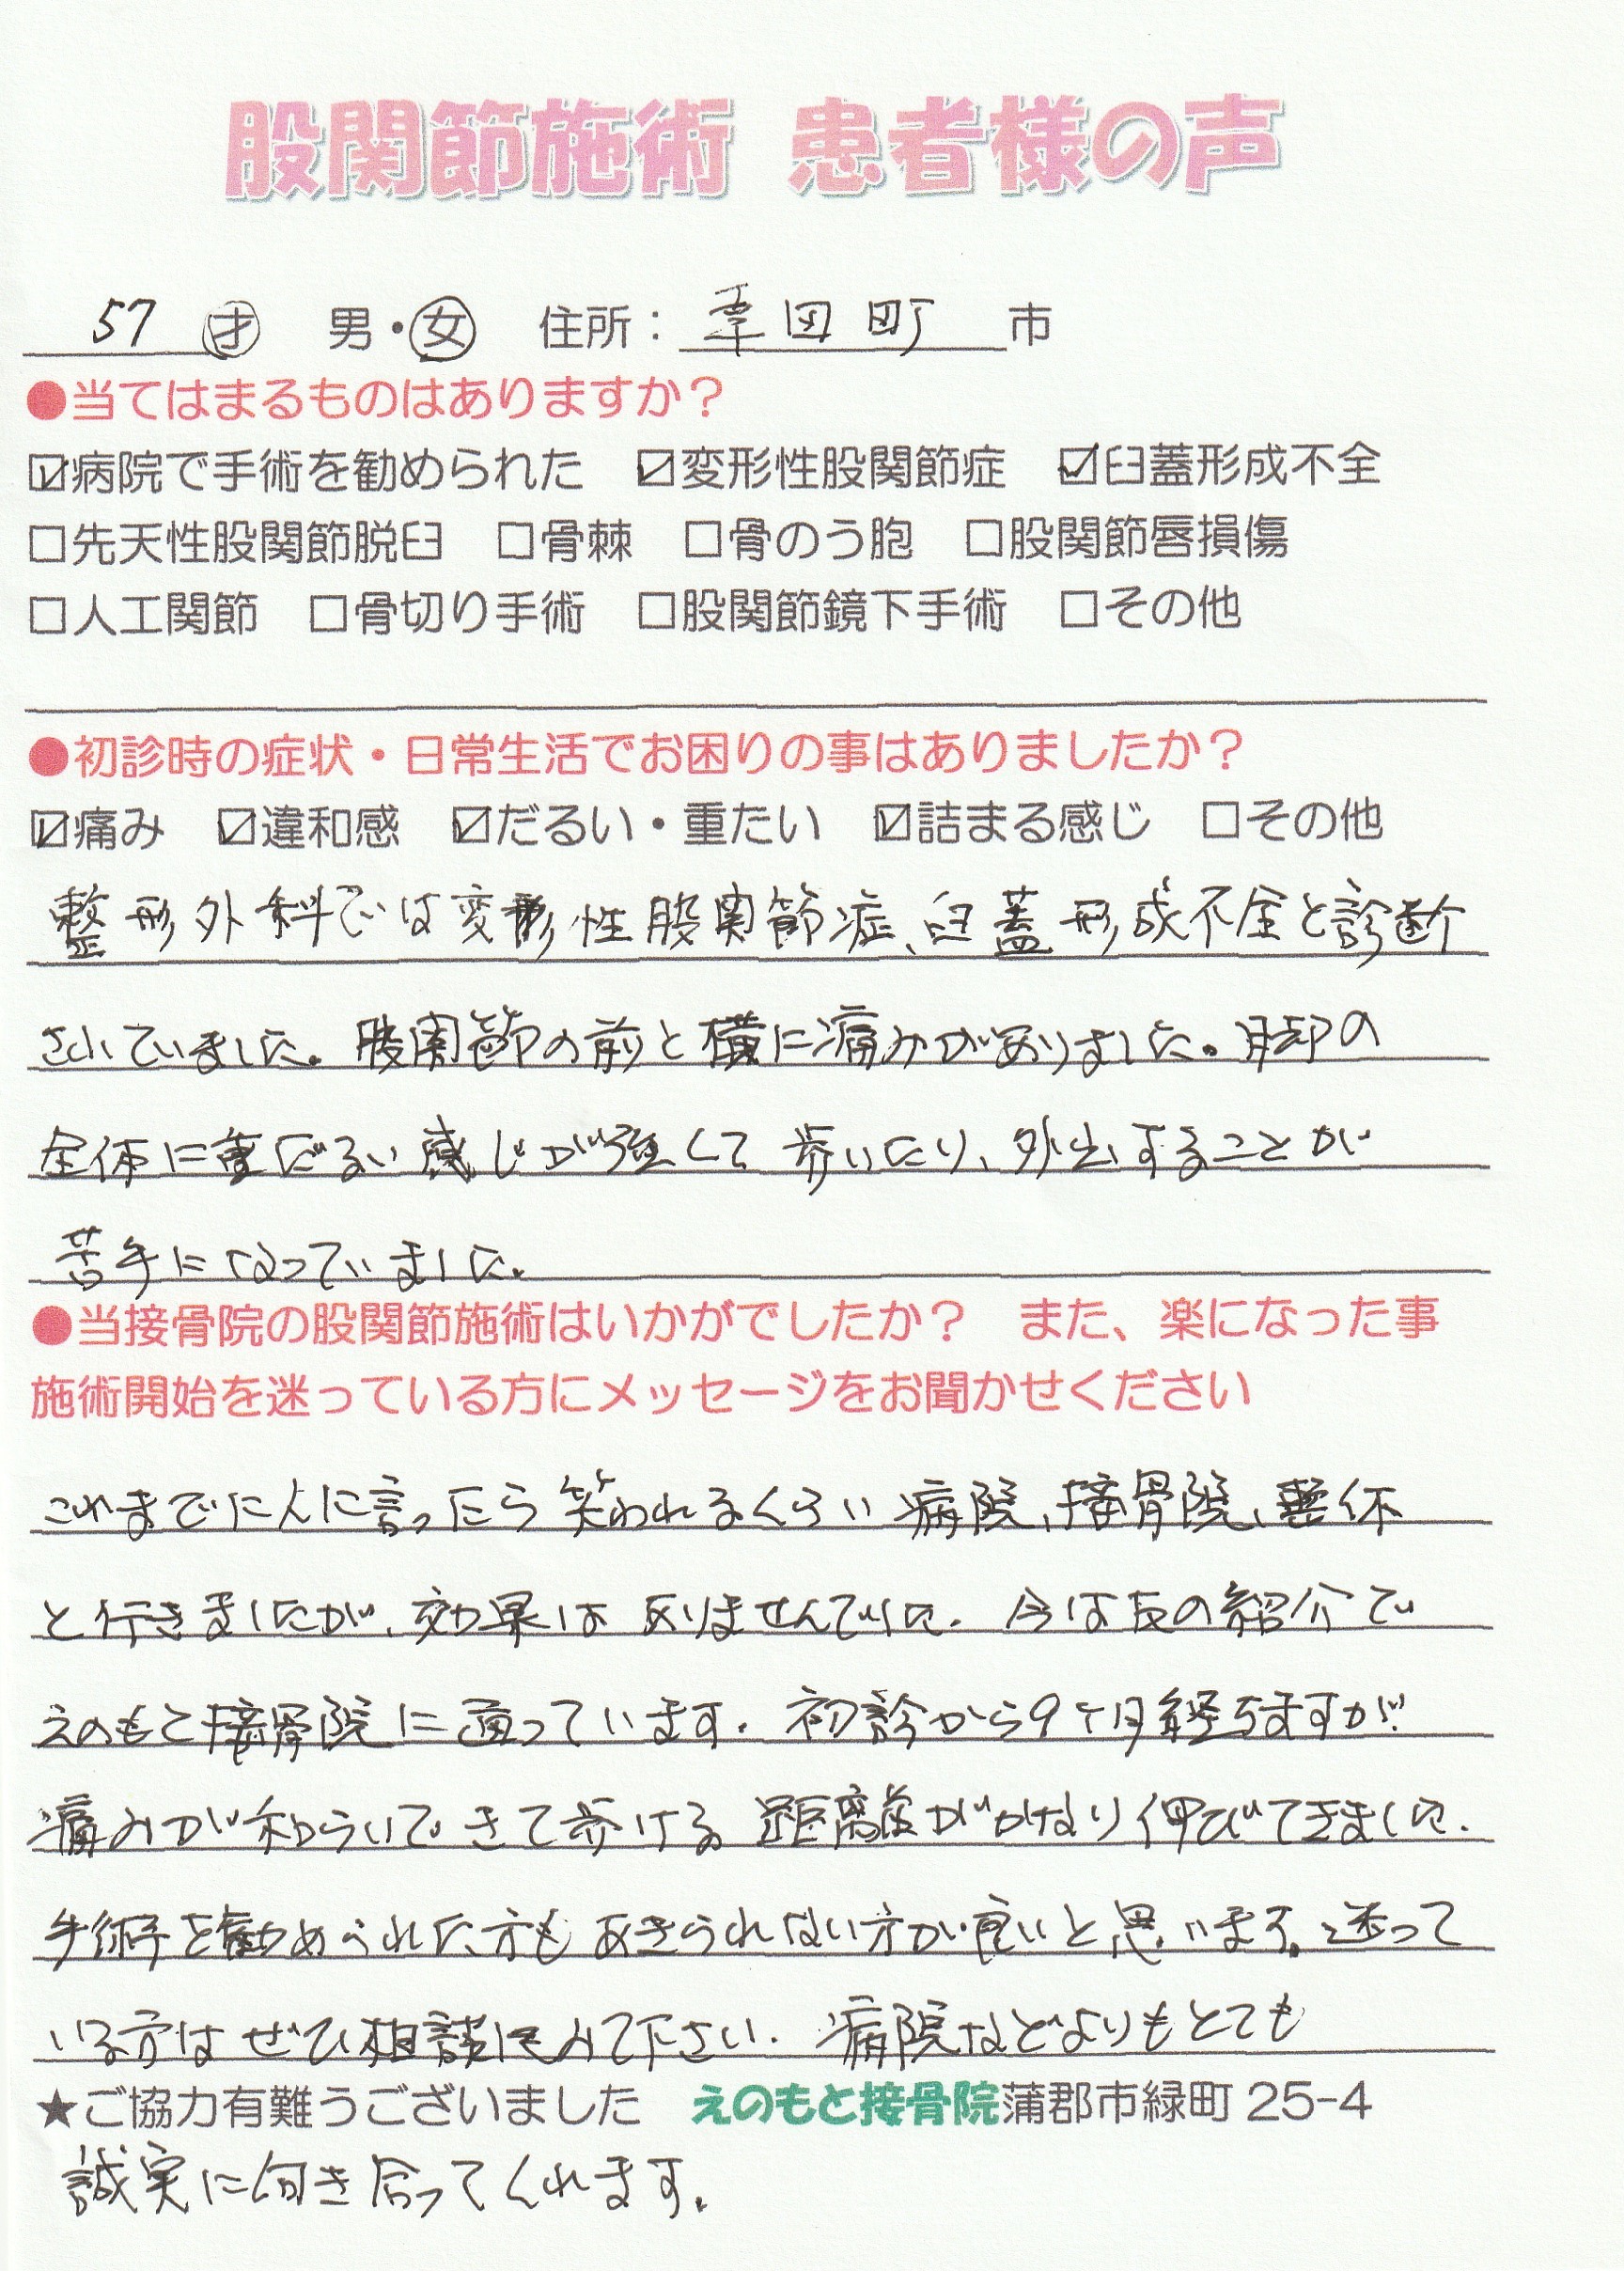 股関節施術 患者様の声
57 才 男・女 住所：幸田町 市
●当てはまるものはありますか？
☑病院で手術を勧められた ☑変形性股関節症 ☑臼蓋形成不全
□先天性股関節脱臼 □骨棘 □骨のう胞 □股関節唇損傷
□人工関節 □骨切り手術 □股関節鏡下手術 □その他
●初診時の症状・日常生活でお困りの事はありましたか？
☑痛み ☑違和感 ☑だるい・重たい ☑詰まる感じ □その他
整形外科では変形性股関節症、臼蓋形成不全と診断
されていました。股関節の前と横に痛みがありました。脚の
全体に重だるい感じが強くて歩いたり、外出することが
苦手になっていました。
●当接骨院の股関節施術はいかがでしたか？ また、楽になった事
施術開始を迷っている方にメッセージをお聞かせください
これまでに人に言ったら笑われるくらい病院、接骨院、整体
と行きましたが、効果はありませんでした。今は友の紹介で
えのもと接骨院に通っています。初診から9ヶ月経ちますが
痛みが和らいできて歩ける距離がかなり伸びてきました。
手術を勧められた方もあきらめない方が良いと思います。迷って
いる方はぜひ相談してみて下さい。病院などよりもとても
★ご協力有難うございました えのもと接骨院蒲郡市緑町 25-4
誠実に向き合ってくれます。